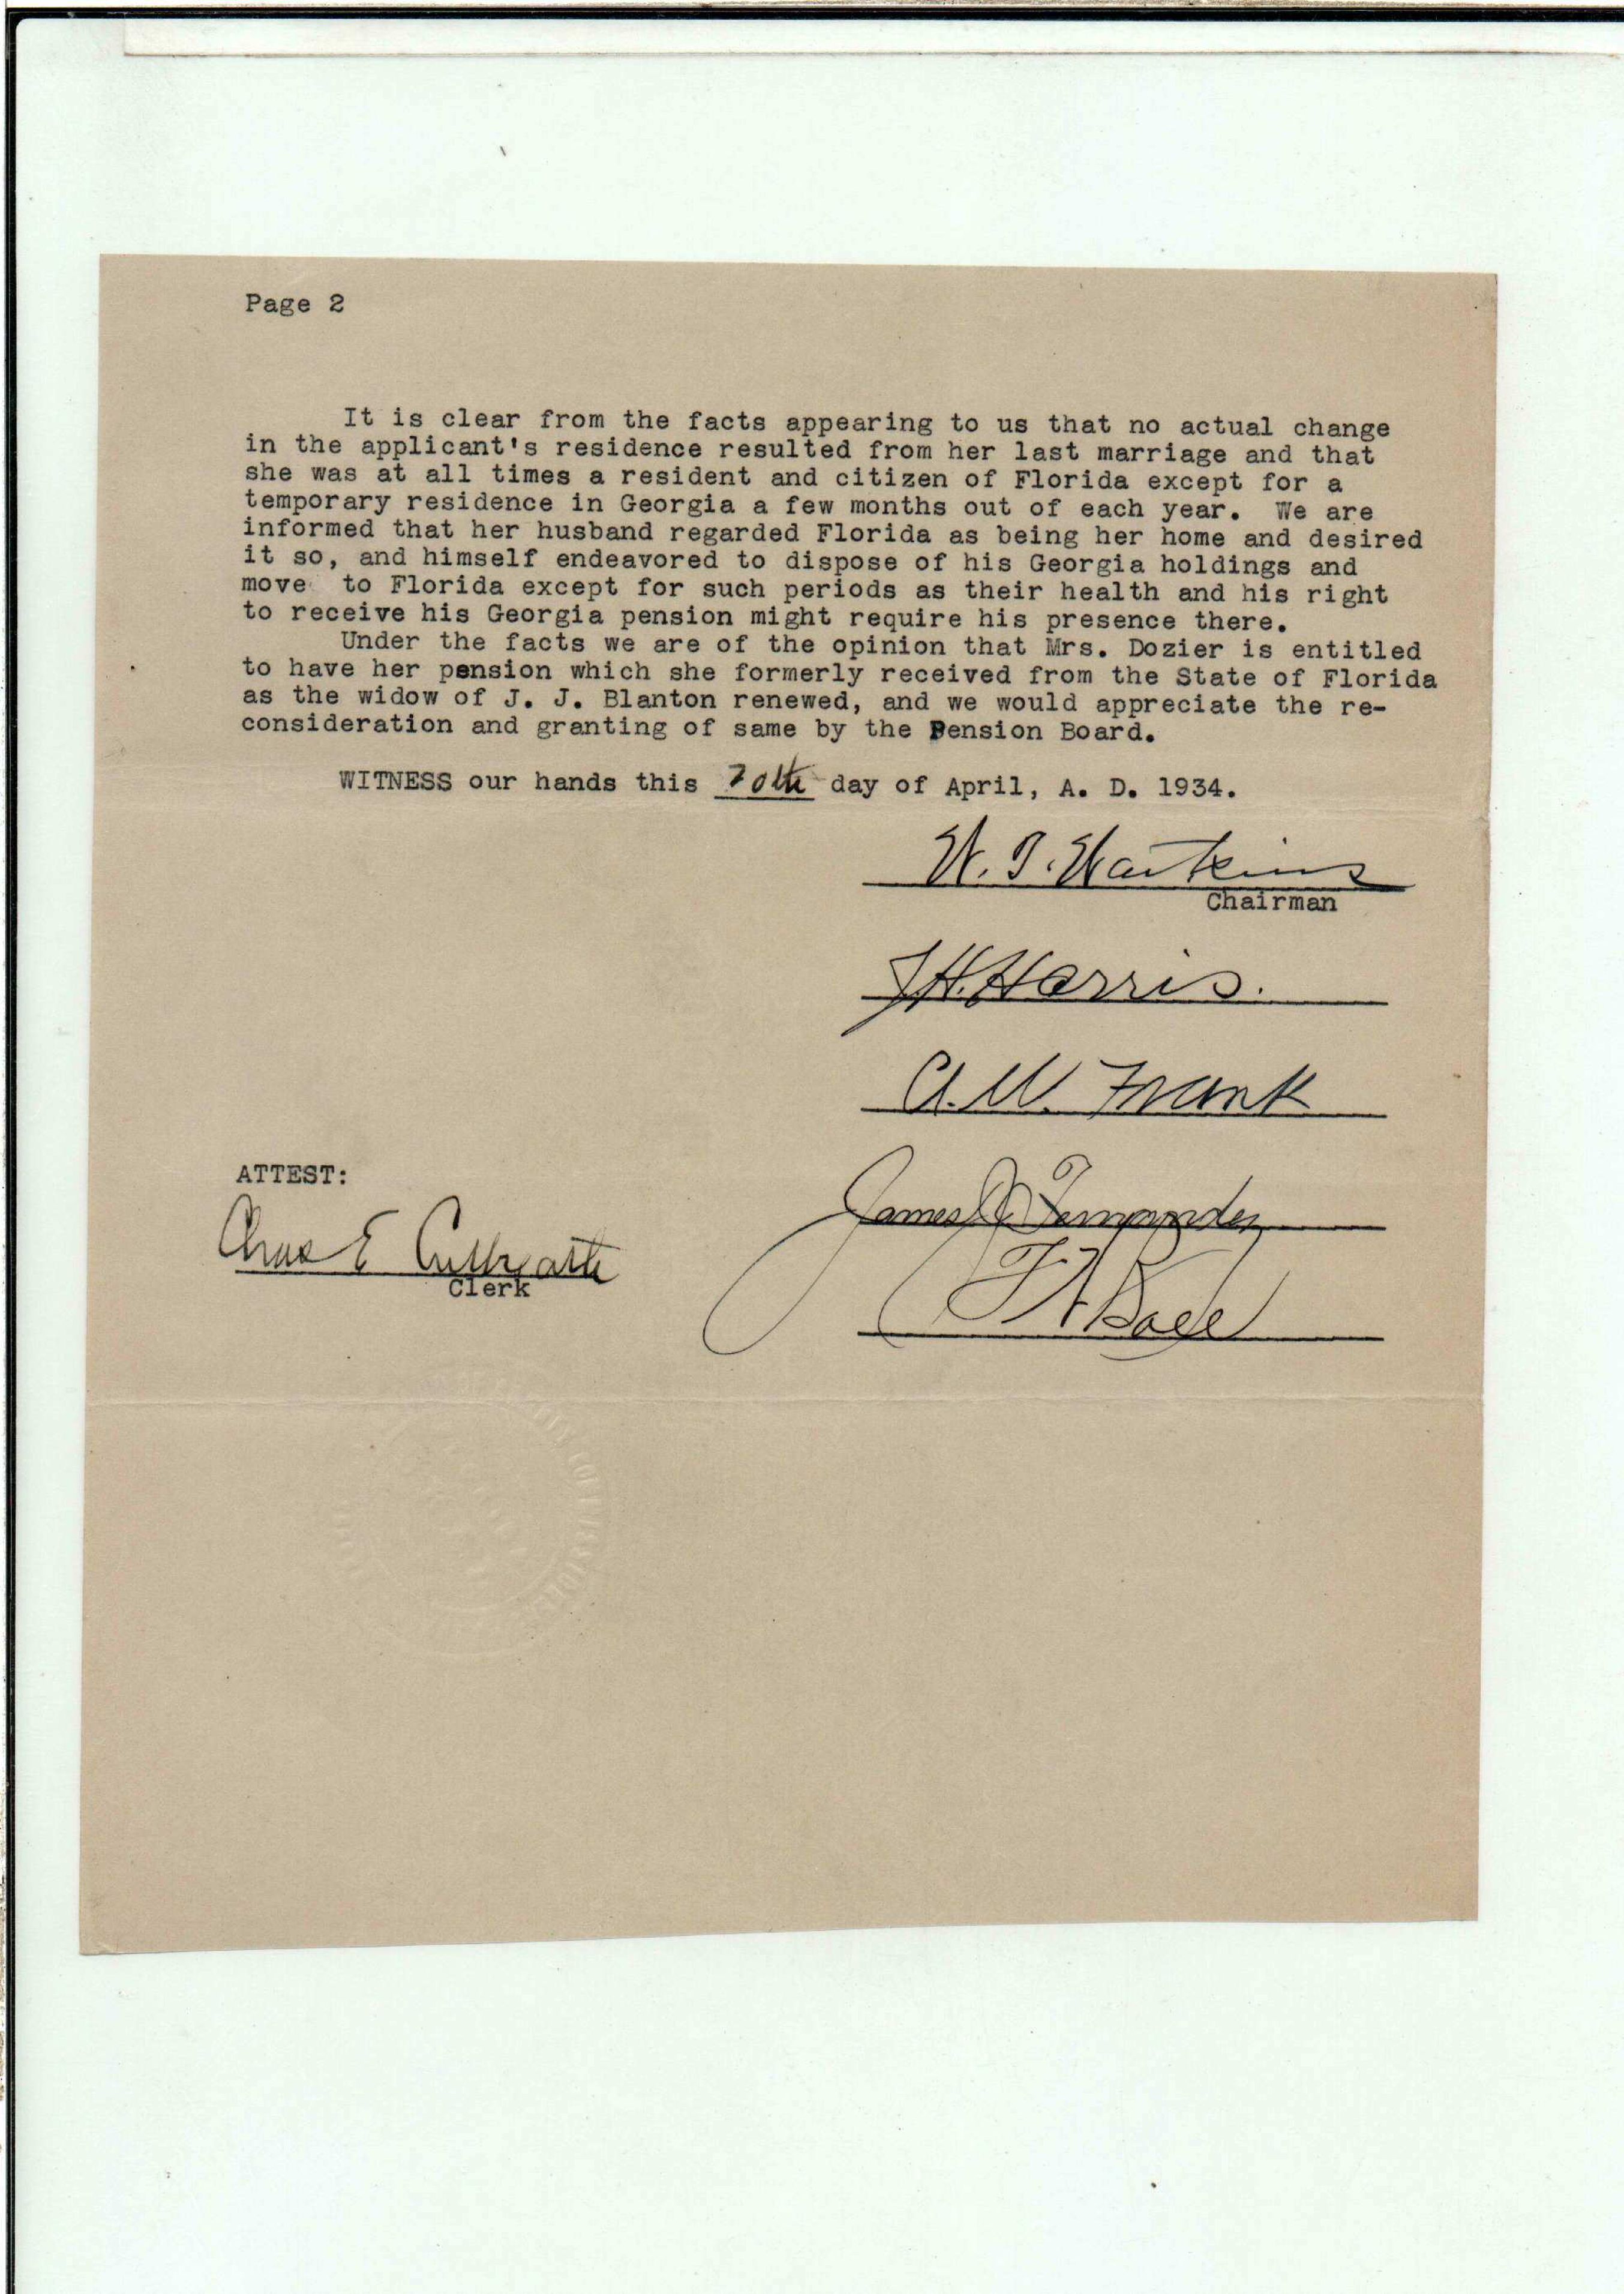 Page 2
It is clear from the facts appearing to us that no actual change
in the applicant's residence resulted from her last marriage and that
she was at all times a resident and citizen of Florida except for a
temporary residence in Georgia a few months out of each year. We are
informed that her husband regarded Florida as being her home and desired
it so, and himself endeavored to dispose of his Georgia holdings and
move to Florida except for such periods as their health and his right
to receive his Georgia pension might require his presence there.
Under the facts we are of the opinion that Mrs. Dozier is entitled
to have her pension which she formerly received from the State of Florida
as the widow of J. J. Blanton renewed, and we would appreciate the re-
consideration and granting of same by the Pension Board.
WITNESS our hands this 20th day of April, A. D. 1934.
W. T. Watkins
Chairman
J H. Harris.
A. W. Frank
ATTEST:
James J Fernandez
Chas E Culbreath
Clerk